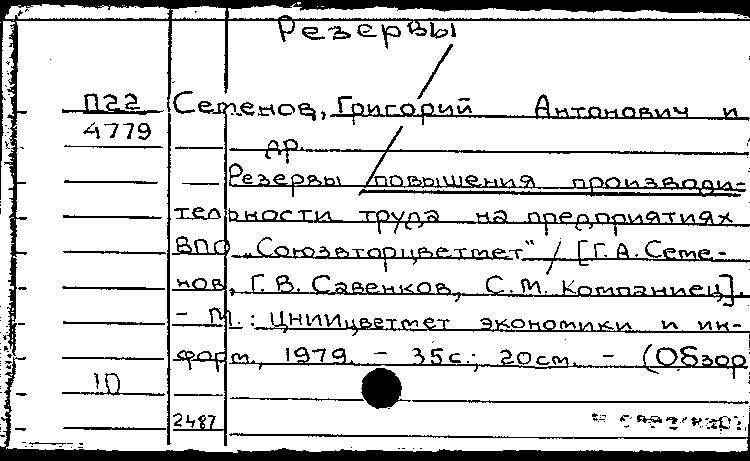 Резервы
П22 Семенов, Григорий Антонович и
4779 др.
Резервы повышения производи-
тельности труда на предприятиях
ВПО „Союзвторцветмет" / [Г.А. Семе-
нов, Г.В. Савенков, С.М. Компаниец].
- М.: ЦНИИцветмет экономики и ин-
форм., 1979. - 35с.; 20см. - (Обзор
10
2487